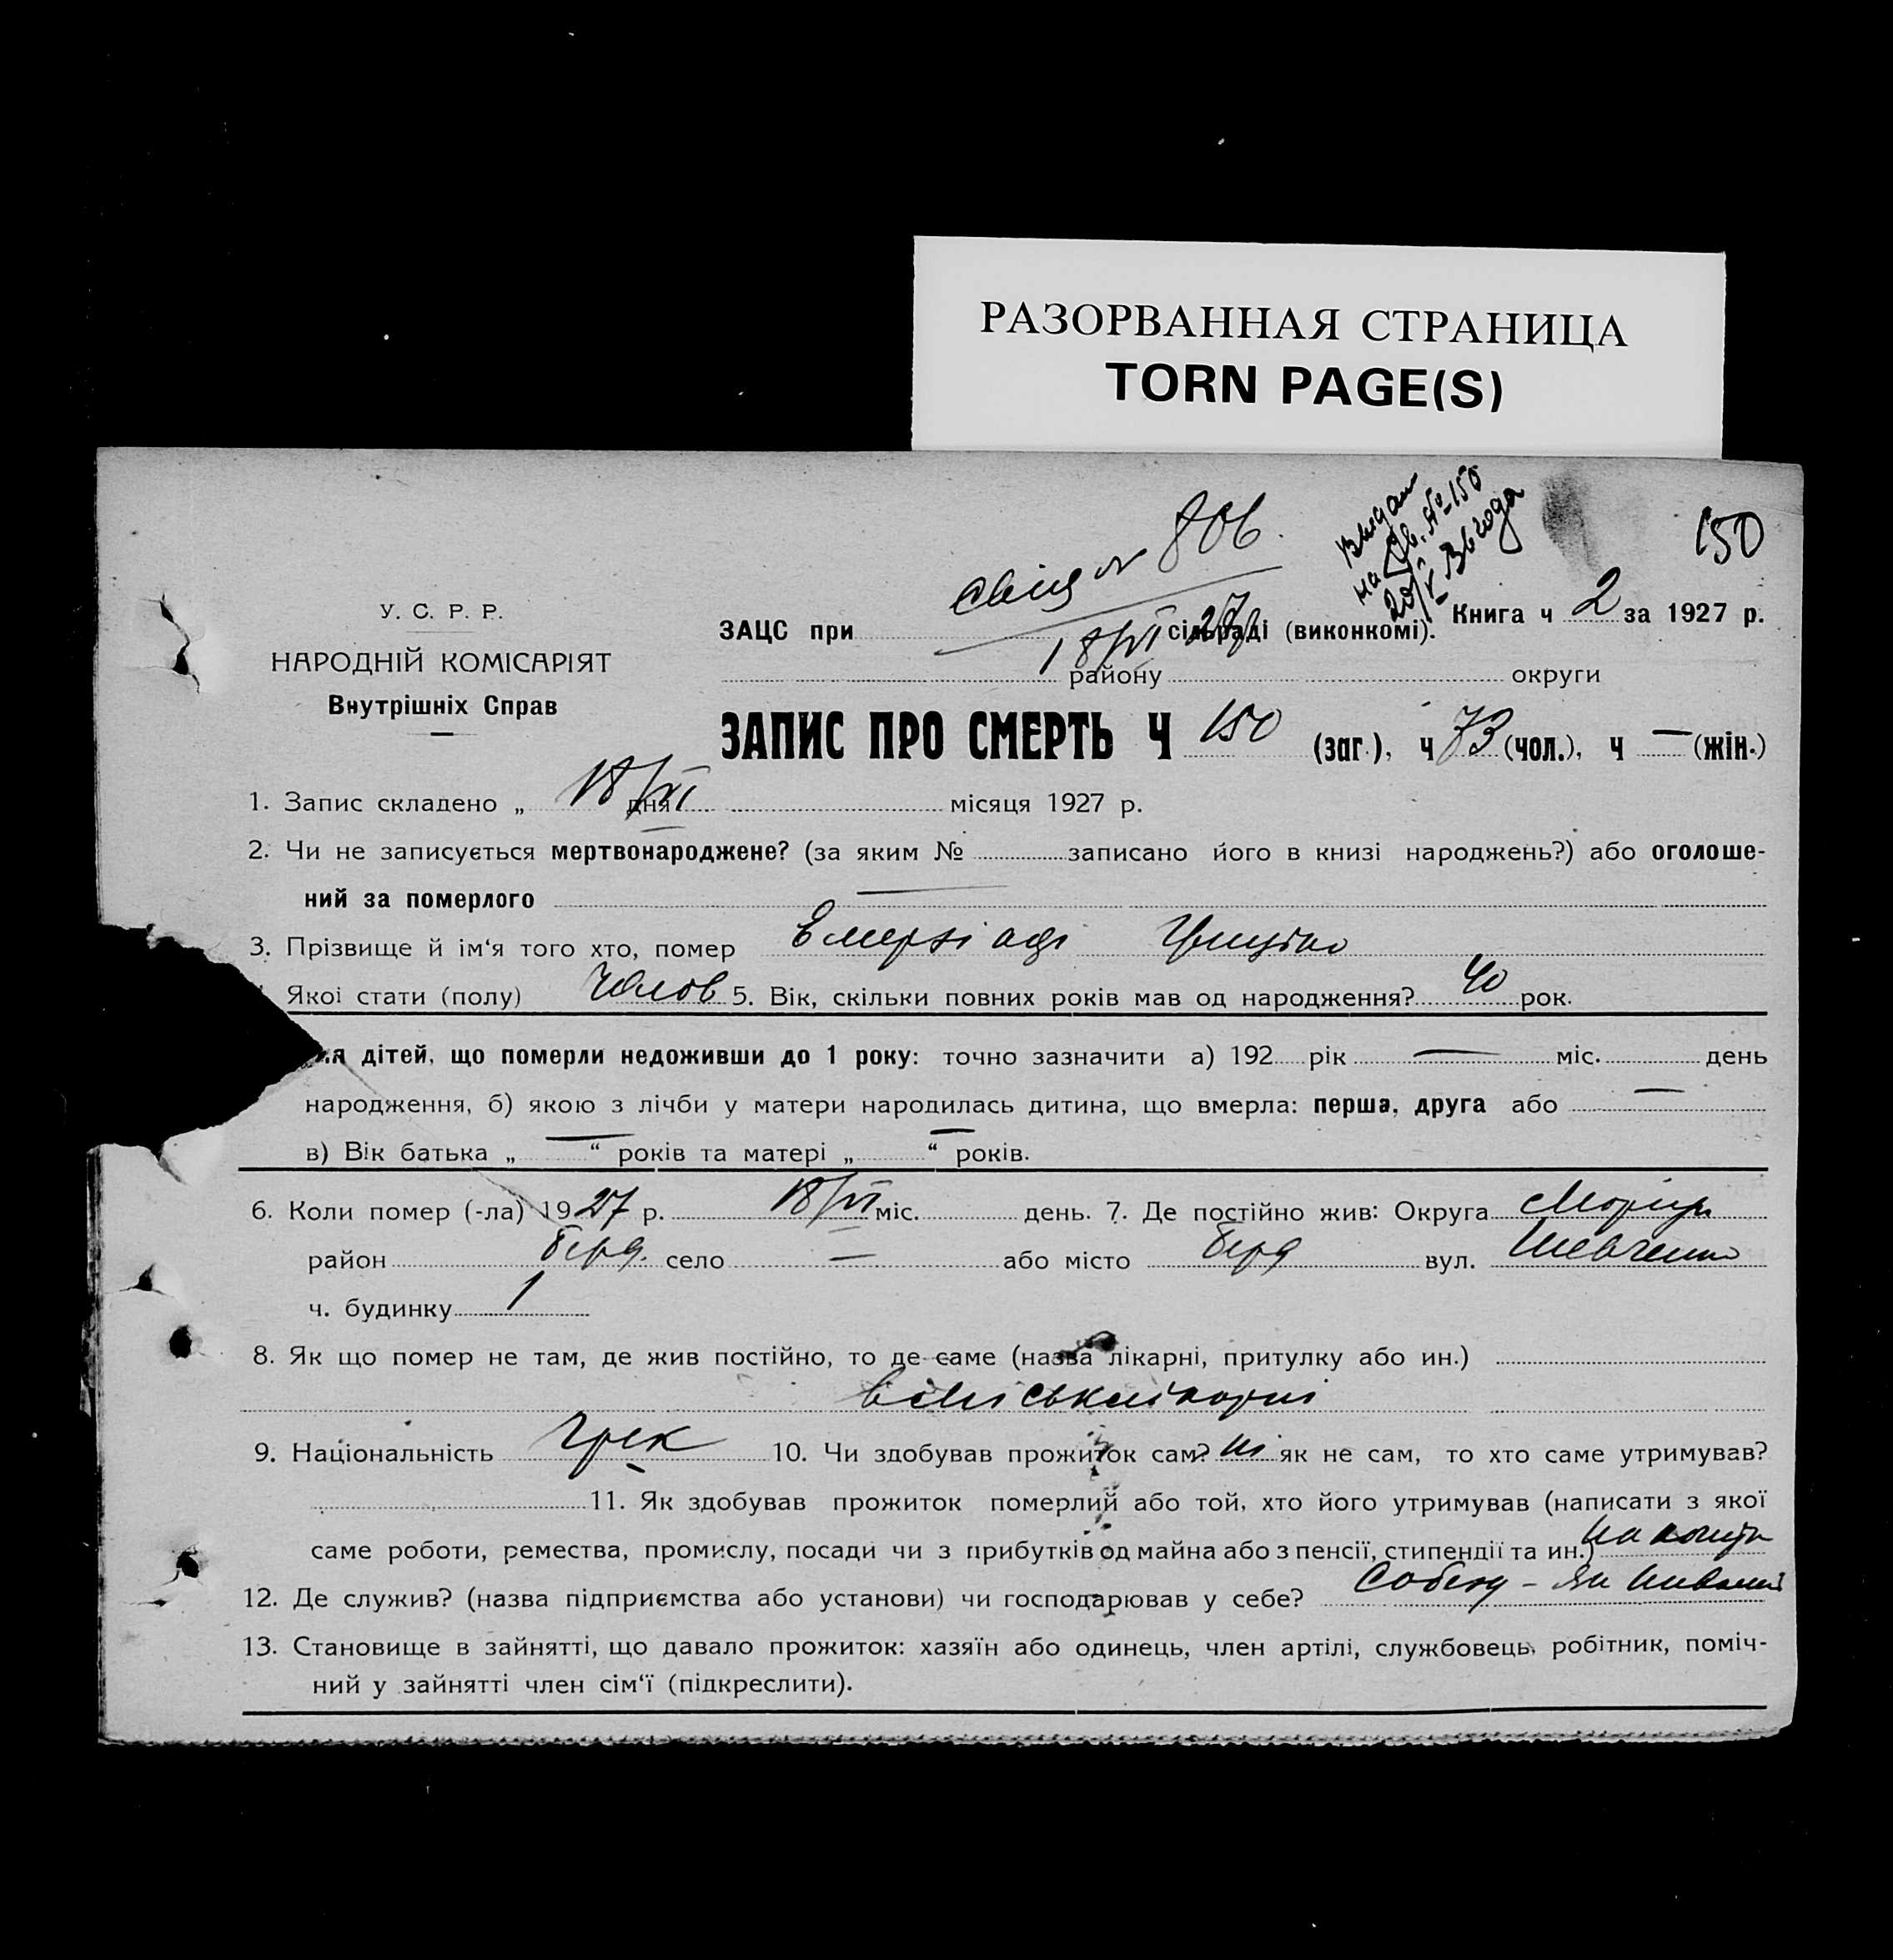 РАЗОРВАННАЯ СТРАНИЦА
TORN PAGE(S)
150
№ 806.
на №-150
У. С. Р. Р.
Книга ч 2 за 1927 р.
ЗАЦС при сільраді (виконкомі).
18/VI 27
НАРОДНІЙ КОМІСАРІЯТ
району округи
Внутрішніх Справ
ЗАПИС ПРО СМЕРТЬ Ч 150 (заг.), ч 73 (чол.), ч — (жін.)
1. Запис складено „ 18/VI дня місяця 1927 р.
2. Чи не записується мертвонароджене? (за яким № записано його в книзі народжень?) або оголоше-
ний за померлого —
3. Прізвище й ім‘я того хто, помер
Якої стати (полу) Чолов 5. Вік, скільки повних років мав од народження? 40 рок.
дітей, що померли недоживши до 1 року: точно зазначити а) 192 рік — міс. день
народження, б) якою з лічби у матери народилась дитина, що вмерла: перша, друга або —
в) Вік батька „ — “ років та матері „ — “ років.
6. Коли помер (-ла) 1927 р. 18/VI міс. день. 7. Де постійно жив: Округа
район Берд. село — або місто Берд вул. Шевченко
ч. будинку 1
8. Як що помер не там, де жив постійно, то де саме (назва лікарні, притулку або ин.)
9. Національність грек 10. Чи здобував прожиток сам? ні як не сам, то хто саме утримував?
11. Як здобував прожиток померлий або той, хто його утримував (написати з якої
саме роботи, ремества, промислу, посади чи з прибутків од майна або з пенсії, стипендії та ин.)
12. Де служив? (назва підприємства або установи) чи господарював у себе?
13. Становище в зайнятті, що давало прожиток: хазяїн або одинець, член артілі, службовець, робітник, поміч-
ний у зайнятті член сім‘ї (підкреслити).